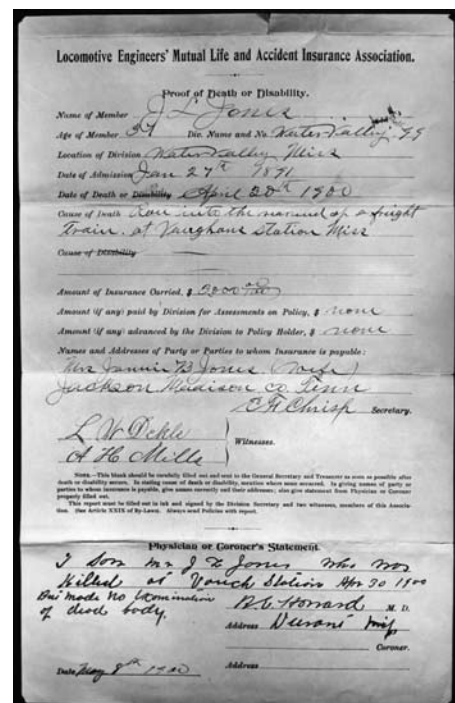 Locomotive Engineers' Mutual Life and Accident Insurance Association.
Proof of Death or Disability.
Name of Member J L Jones
Age of Member 37 Div. Name and No. Water Valley 99
Location of Division Water Valley Miss
Date of Admission Jan 27th 1891
Date of Death or Disability April 30th 1900
Cause of Death Ran into the rear end of a freight
train. at Vaughans Station Miss
Cause of Disability
Amount of Insurance Carried, $ 3000 00/100
Amount (if any) paid by Division for Assessments on Policy, $ none
Amount (if any) advanced by the Division to Policy Holder, $ none
Names and Addresses of Party or Parties to whom Insurance is payable:
Mrs Jannie B Jones (Wife)
Jackson Madison co Tenn
E F Chrisp Secretary.
L W Dekle
A H Mills
Witnesses.
NOTE.—This blank should be carefully filled out and sent to the General Secretary and Treasurer as soon as possible after
death or disability occurs. In stating cause of death or disability, mention where same occurred. In giving names of party or
parties to whom insurance is payable, give names correctly and their addresses; also give statement from Physician or Coroner
properly filled out.
This report must be filled out in ink and signed by the Division Secretary and two witnesses, members of this Associa-
tion. (See Article XXIX of By-Laws. Always send Policies with report.
Physician or Coroner's Statement.
I saw Mr J L Jones who was
Killed at Vauch Station Apr 30 1900
But made no Examination
of dead body.
Howard M. D.
Address Durant Miss
Coroner.
Date May 8th 1900 Address